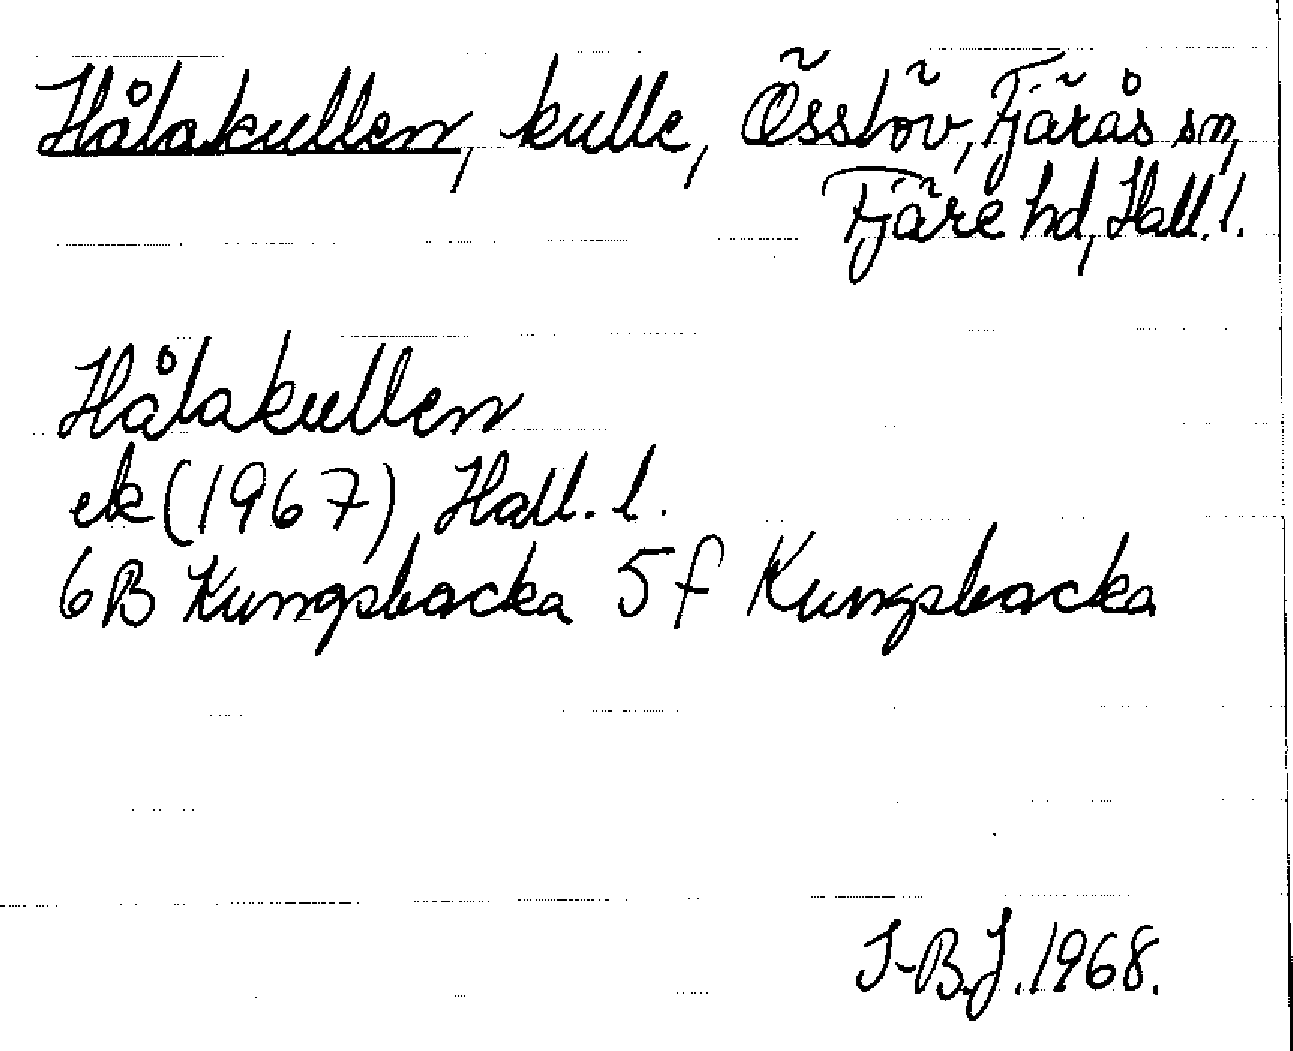 Hålakullen, kulle, Össlöv, Fjärås sn,
Fjäre hd, Hall. l.
Hålakullen
ek (1967) Hall. l.
6B Kungsbacka 5f Kungsbacka
I-B.J. 1968.